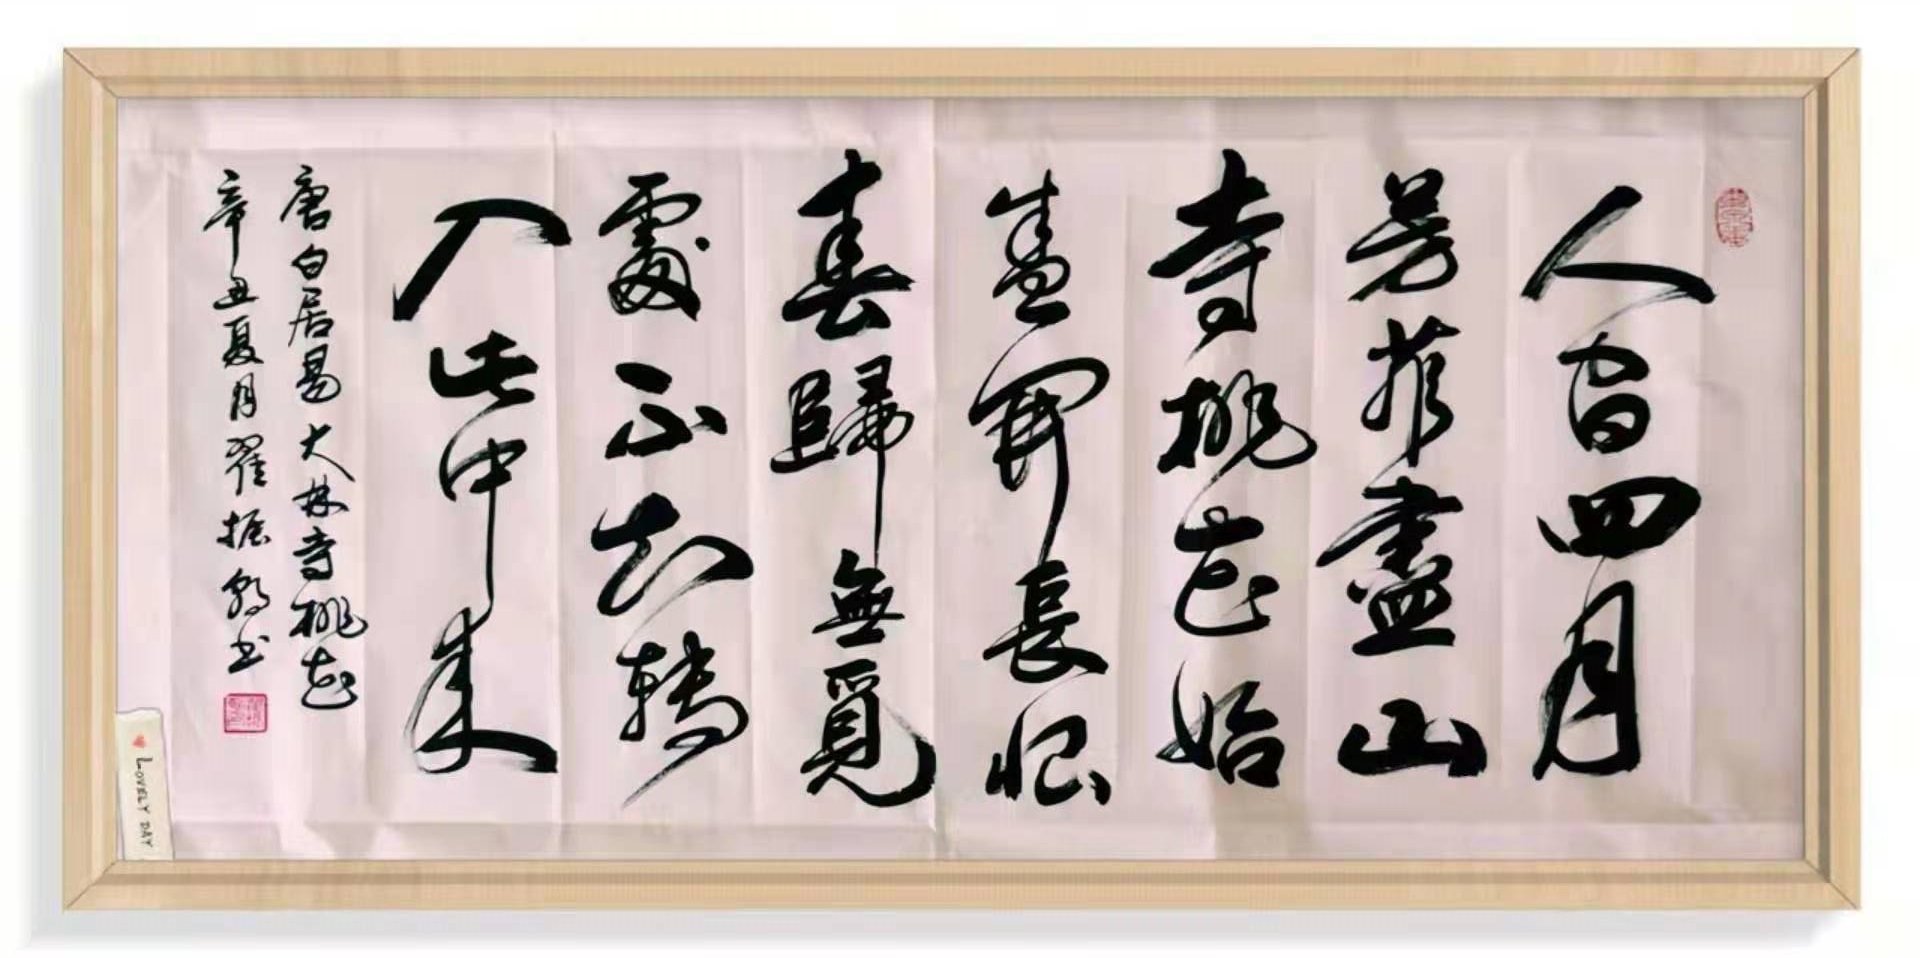 人間四月
芳菲盡山
寺桃花始
盛開長恨
春歸無覓
處不知轉
入此中來
唐白居易大林寺桃花
辛丑夏月翟振书
LOVELY DAY